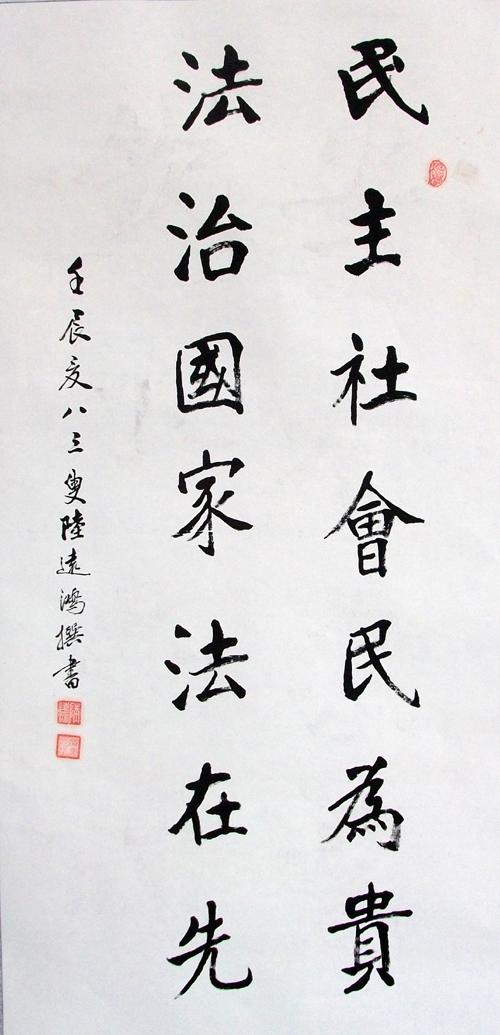 民主社會民為貴
法治國家法在先
壬辰夏八三叟陸遠鴻撰書